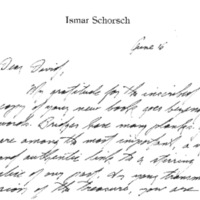 Ismar Schorsch
June 6
Dear David,
My gratitude for the inscribed
copy of your new book goes beyond
words. Bridges have many
are among the most important, a
and authentic link to a
of our past. As your
of the treasure, you are